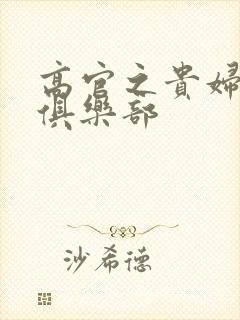 高官之貴婦
俱樂部
沙希德